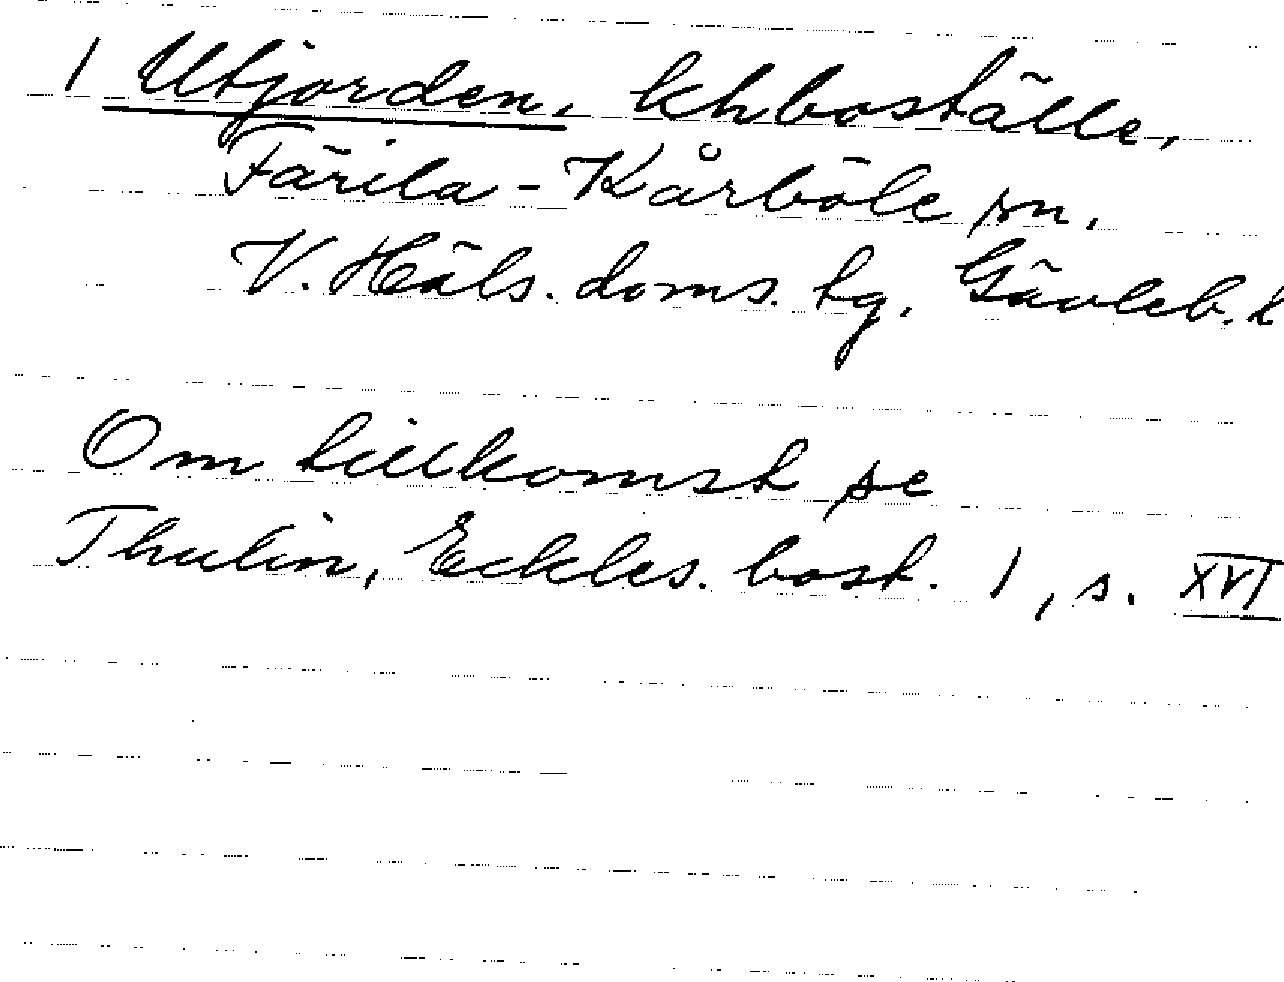 1 Utjorden, khboställe,
Färila-Kårböle sn.
V. Häls. doms. tg. Gävleb. l
Om tillkomst se
Thulin, Eckles. bost. 1, s. XVI